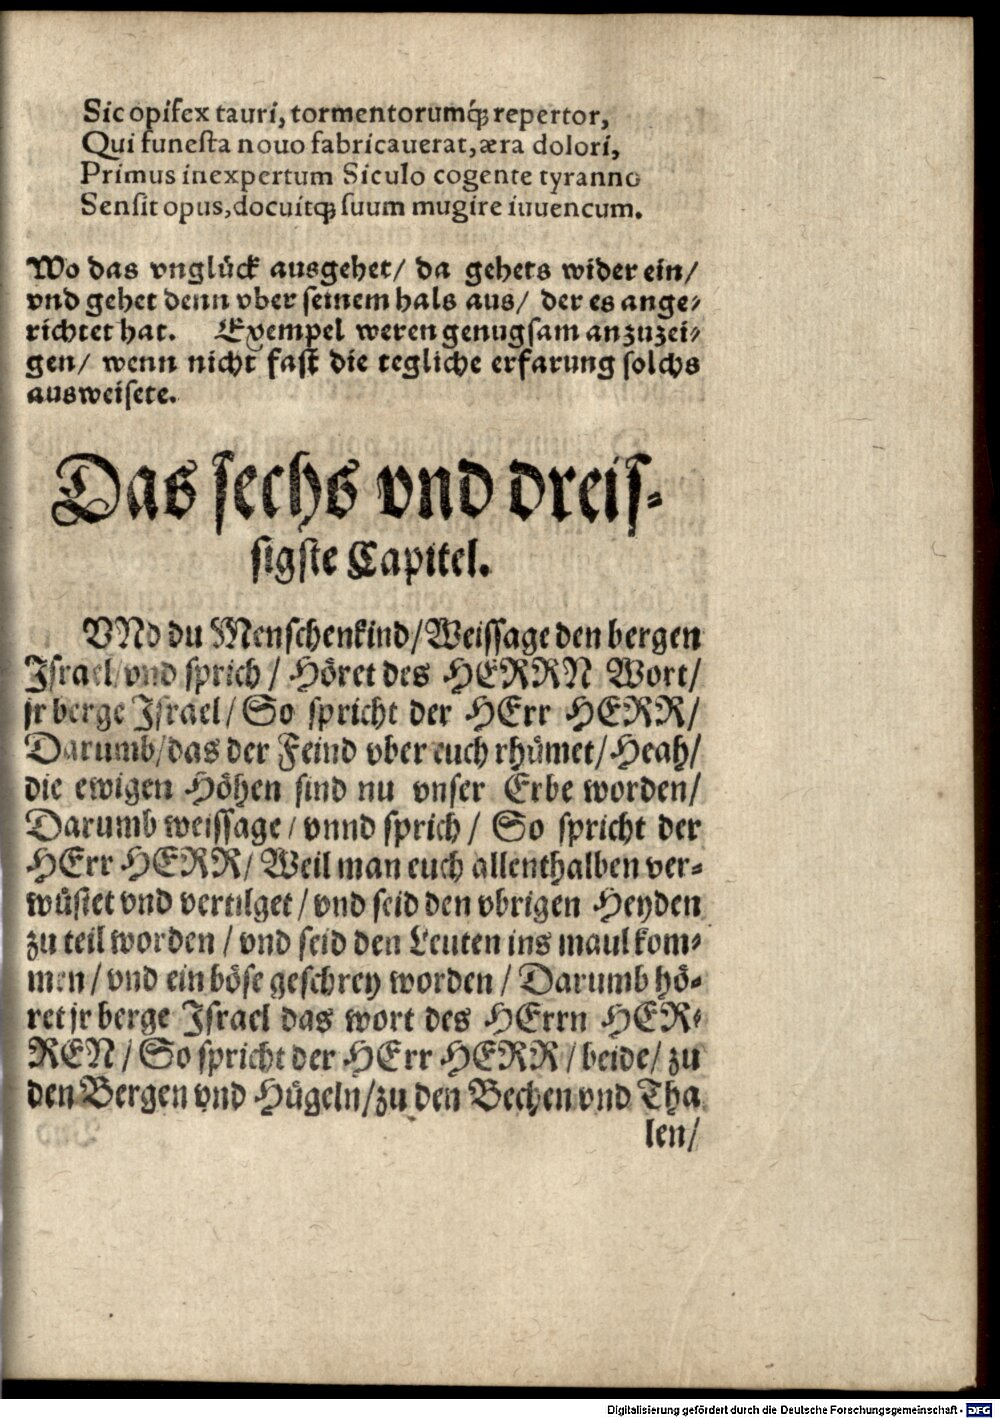 Sic opifex tauri, tormentorumq́ꝫ repertor,
Qui funeſta nouo fabricauerat, æra dolori,
Primus inexpertum Siculo cogente tyranno
Senſit opus, docuitqꝫ ſuum mugire iuuencum.
Wo das vnglück ausgehet/ da gehets wider ein/
vnd gehet denn vber ſeinem hals aus/ der es ange⸗
richtet hat. Exempel weren genugſam anzuzei⸗
gen/ wenn nicht faſt die tegliche erfarung ſolchs
ausweiſete.
Das ſechs vnd dreiſ⸗
ſigſte Capitel.
VNd du Menſchenkind/ Weiſſage den bergen
Iſrael/ vnd ſprich/ Höret des HERRN Wort/
jr berge Iſrael/ So ſpricht der HErr HERR/
Darumb/ das der Feind vber euch rhümet/ Heah/
die ewigen Höhen ſind nu vnſer Erbe worden/
Darumb weiſſage/ vnnd ſprich/ So ſpricht der
HErr HERR/ Weil man euch allenthalben ver⸗
wüſtet vnd vertilget/ vnd ſeid den vbrigen Heyden
zu teil worden/ vnd ſeid den Leuten ins maul kom⸗
men/ vnd ein böſe geſchrey worden/ Darumb hö⸗
ret jr berge Iſrael das wort des HErrn HER⸗
REN/ So ſpricht der HErr HERR/ beide/ zu
den Bergen vnd Hügeln/ zu den Bechen vnd Tha
len/
Digitalisierung gefördert durch die Deutsche Forschungsgemeinschaft - DFG